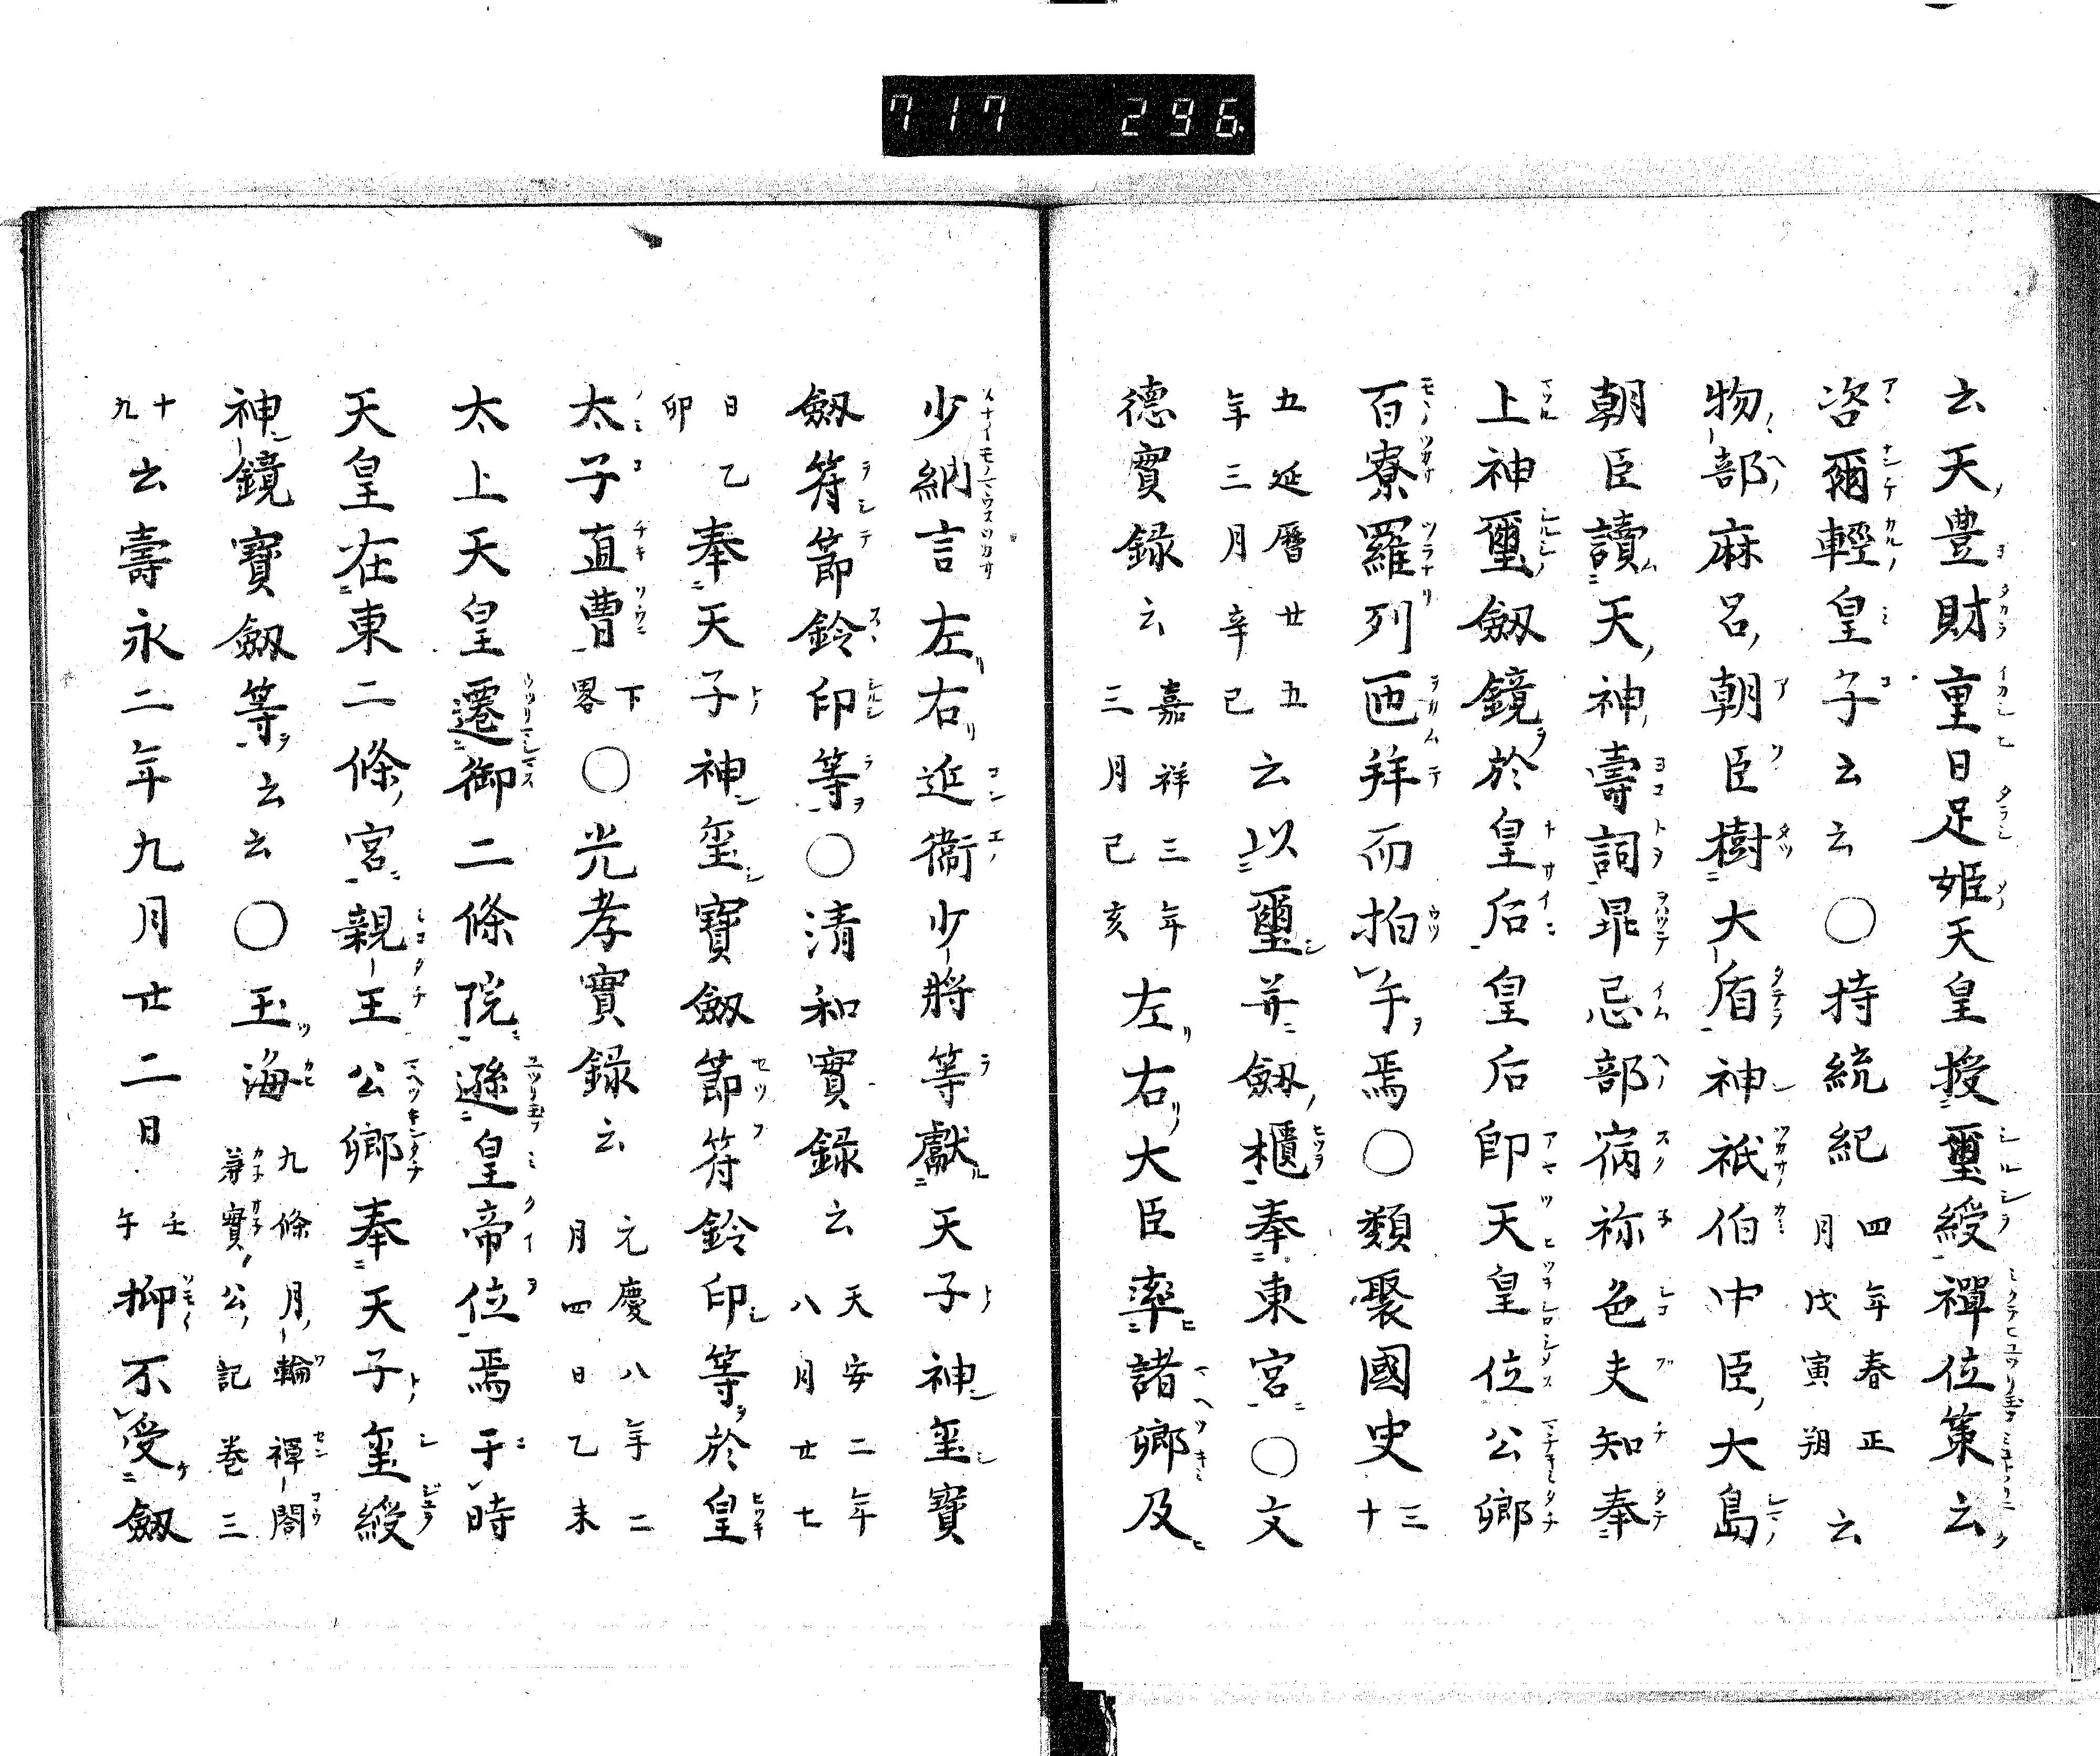 717 296
云天豊財重日足姫天皇授璽綬禪位策云
咨爾輕皇子云云〇持統紀四年春正月戊寅朔云
物部麻呂朝臣樹大盾神祇伯中臣大島
朝臣讀天神壽詞畢忌部宿祢色夫知奉
上神璽劔鏡於皇后皇后即天皇位公卿
百寮羅列匝拜而拍手焉〇類聚國史三十
五延暦廿五年三月辛巳云以璽并劔櫃奉東宮〇文
德實録云嘉祥三年三月己亥左右大臣率諸卿及
少納言左右近衞少將等獻天子神璽寶
劔符節鈴印等〇清和實録云天安二年八月廿七
日乙卯奉天子神璽寶劔節符鈴印等於皇
太子直曹下畧〇光孝實録云元慶八年二月四日乙未
太上天皇遷御二條院遜皇帝位焉于時
天皇在東二條宮親王公卿奉天子璽綬
神鏡寶劔等云云〇玉海九條月輪禪閤兼實公記巻三
十九云壽永二年九月廿二日壬午抑不受劔